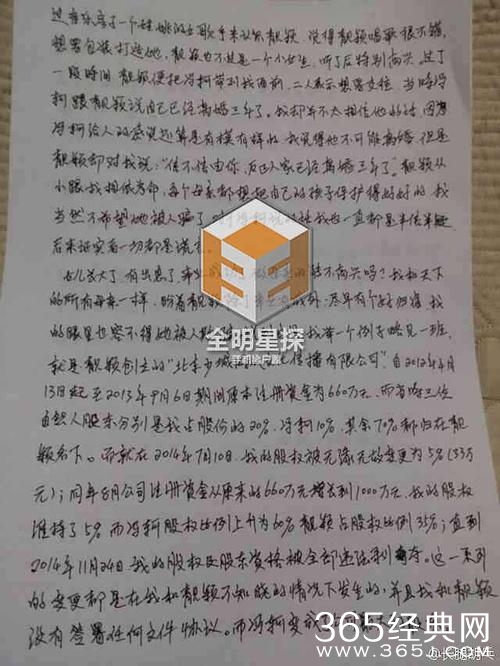 过音乐房了一个
女歌手来认识靓颖,说得靓颖唱歌很不错,
想要包装打造她,靓颖也不过是一个小女生,听了后特别高兴,过了
一段时间靓颖便把冯柯带到我面前,二人表示想要交往,当时冯
柯跟靓颖说自己已经离婚三年了。我却并不太相信他的话,因为
冯柯给人的感觉还算是有模有样的,我觉得他不可能离婚,但是
靓颖却对我说:“信不信由你,反正人家已经离婚三年了”,靓颖从
小跟我相依为命,每个母亲都想把自己的孩子保护得好好的,我
当然不希望她被人骗了,
冯柯说的话我也一直都是半信半疑
后来证实着一切都是谎言。
女儿长大了,有出息了,
不高兴吗?我和天下
的所有母亲一样,盼着靓颖
尽早有个好归宿,我
的眼里也容不得她被人欺
我举一个例子略见一斑,
就是靓颖创立的“北京少城
传播有限公司”,自2012年4月
13日起至2013年9月6日期间原本注册资金为660万元,而当时三位
自然人股东分别是我占股份的20%,冯柯10%,其余70%都归在靓
颖名下。而就在2014年7月10日,我的股权被无缘无故变更为5%(33万
元);同年8月公司注册资金从原来的660万元增长到1000万元,我的股权
维持了5%而冯柯股权比例上升为60%靓颖占股权比例35%;直到
2014年11月24日,我的股权及股东资格被全部违法剥夺。这一系列
的变更都是在我和靓颖不知晓的情况下发生的,并且我和靓颖
没有签署任何文件协议。而冯柯变成
全明星探
手机客户端
365经典网
www.365JCW.COM